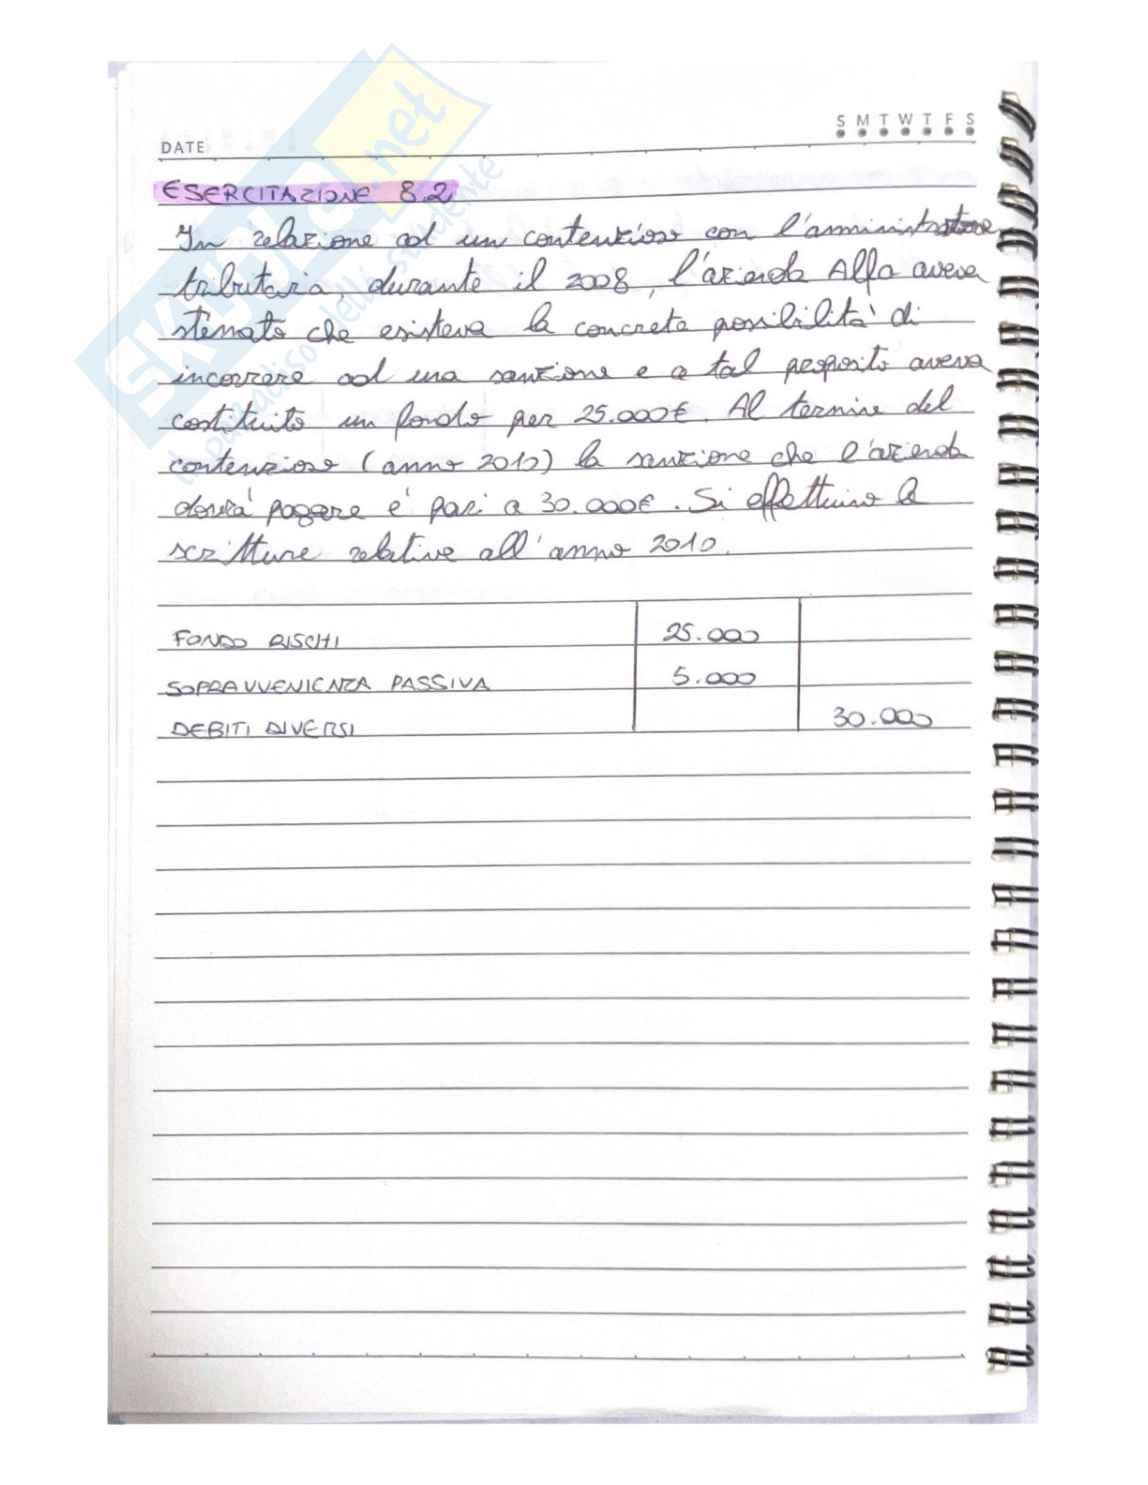 S M T W T F S
DATE
ESERCITAZIONE 8.2
In relazione ad un contenzioso con l'amministratore
tributaria, durante il 2008, l'azienda Alfa aveva
stimato che esisteva la concreta possibilità di
incorrere ad una sanzione e a tal proposito aveva
costituito un fondo per 25.000€. Al termine del
contenzioso (anno 2010) la sanzione che l'azienda
dovrà pagare è pari a 30.000€. Si effettuino le
scritture relative all'anno 2010.
FONDO RISCHI 25.000
SOPRAVVENIENZA PASSIVA 5.000
DEBITI DIVERSI 30.000
SKUOLA.net
il paradiso dello studente